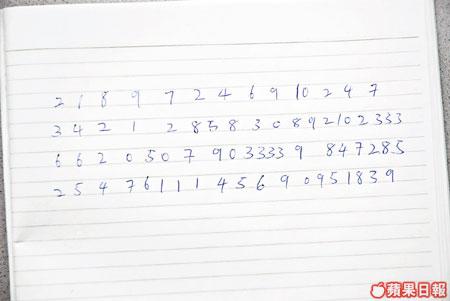 2 1 8 9 7 2 4 6 9 10 2 4 7
3 4 2 1 2 85 8 3 0 8 9 2 10 2 333
6 6 2 0 50 7 9 0 3333 9 8 4 7 2 8 5
2 5 4 7 6 1 1 1 4 5 6 9 0 9 5 1 8 3 9
蘋果日報